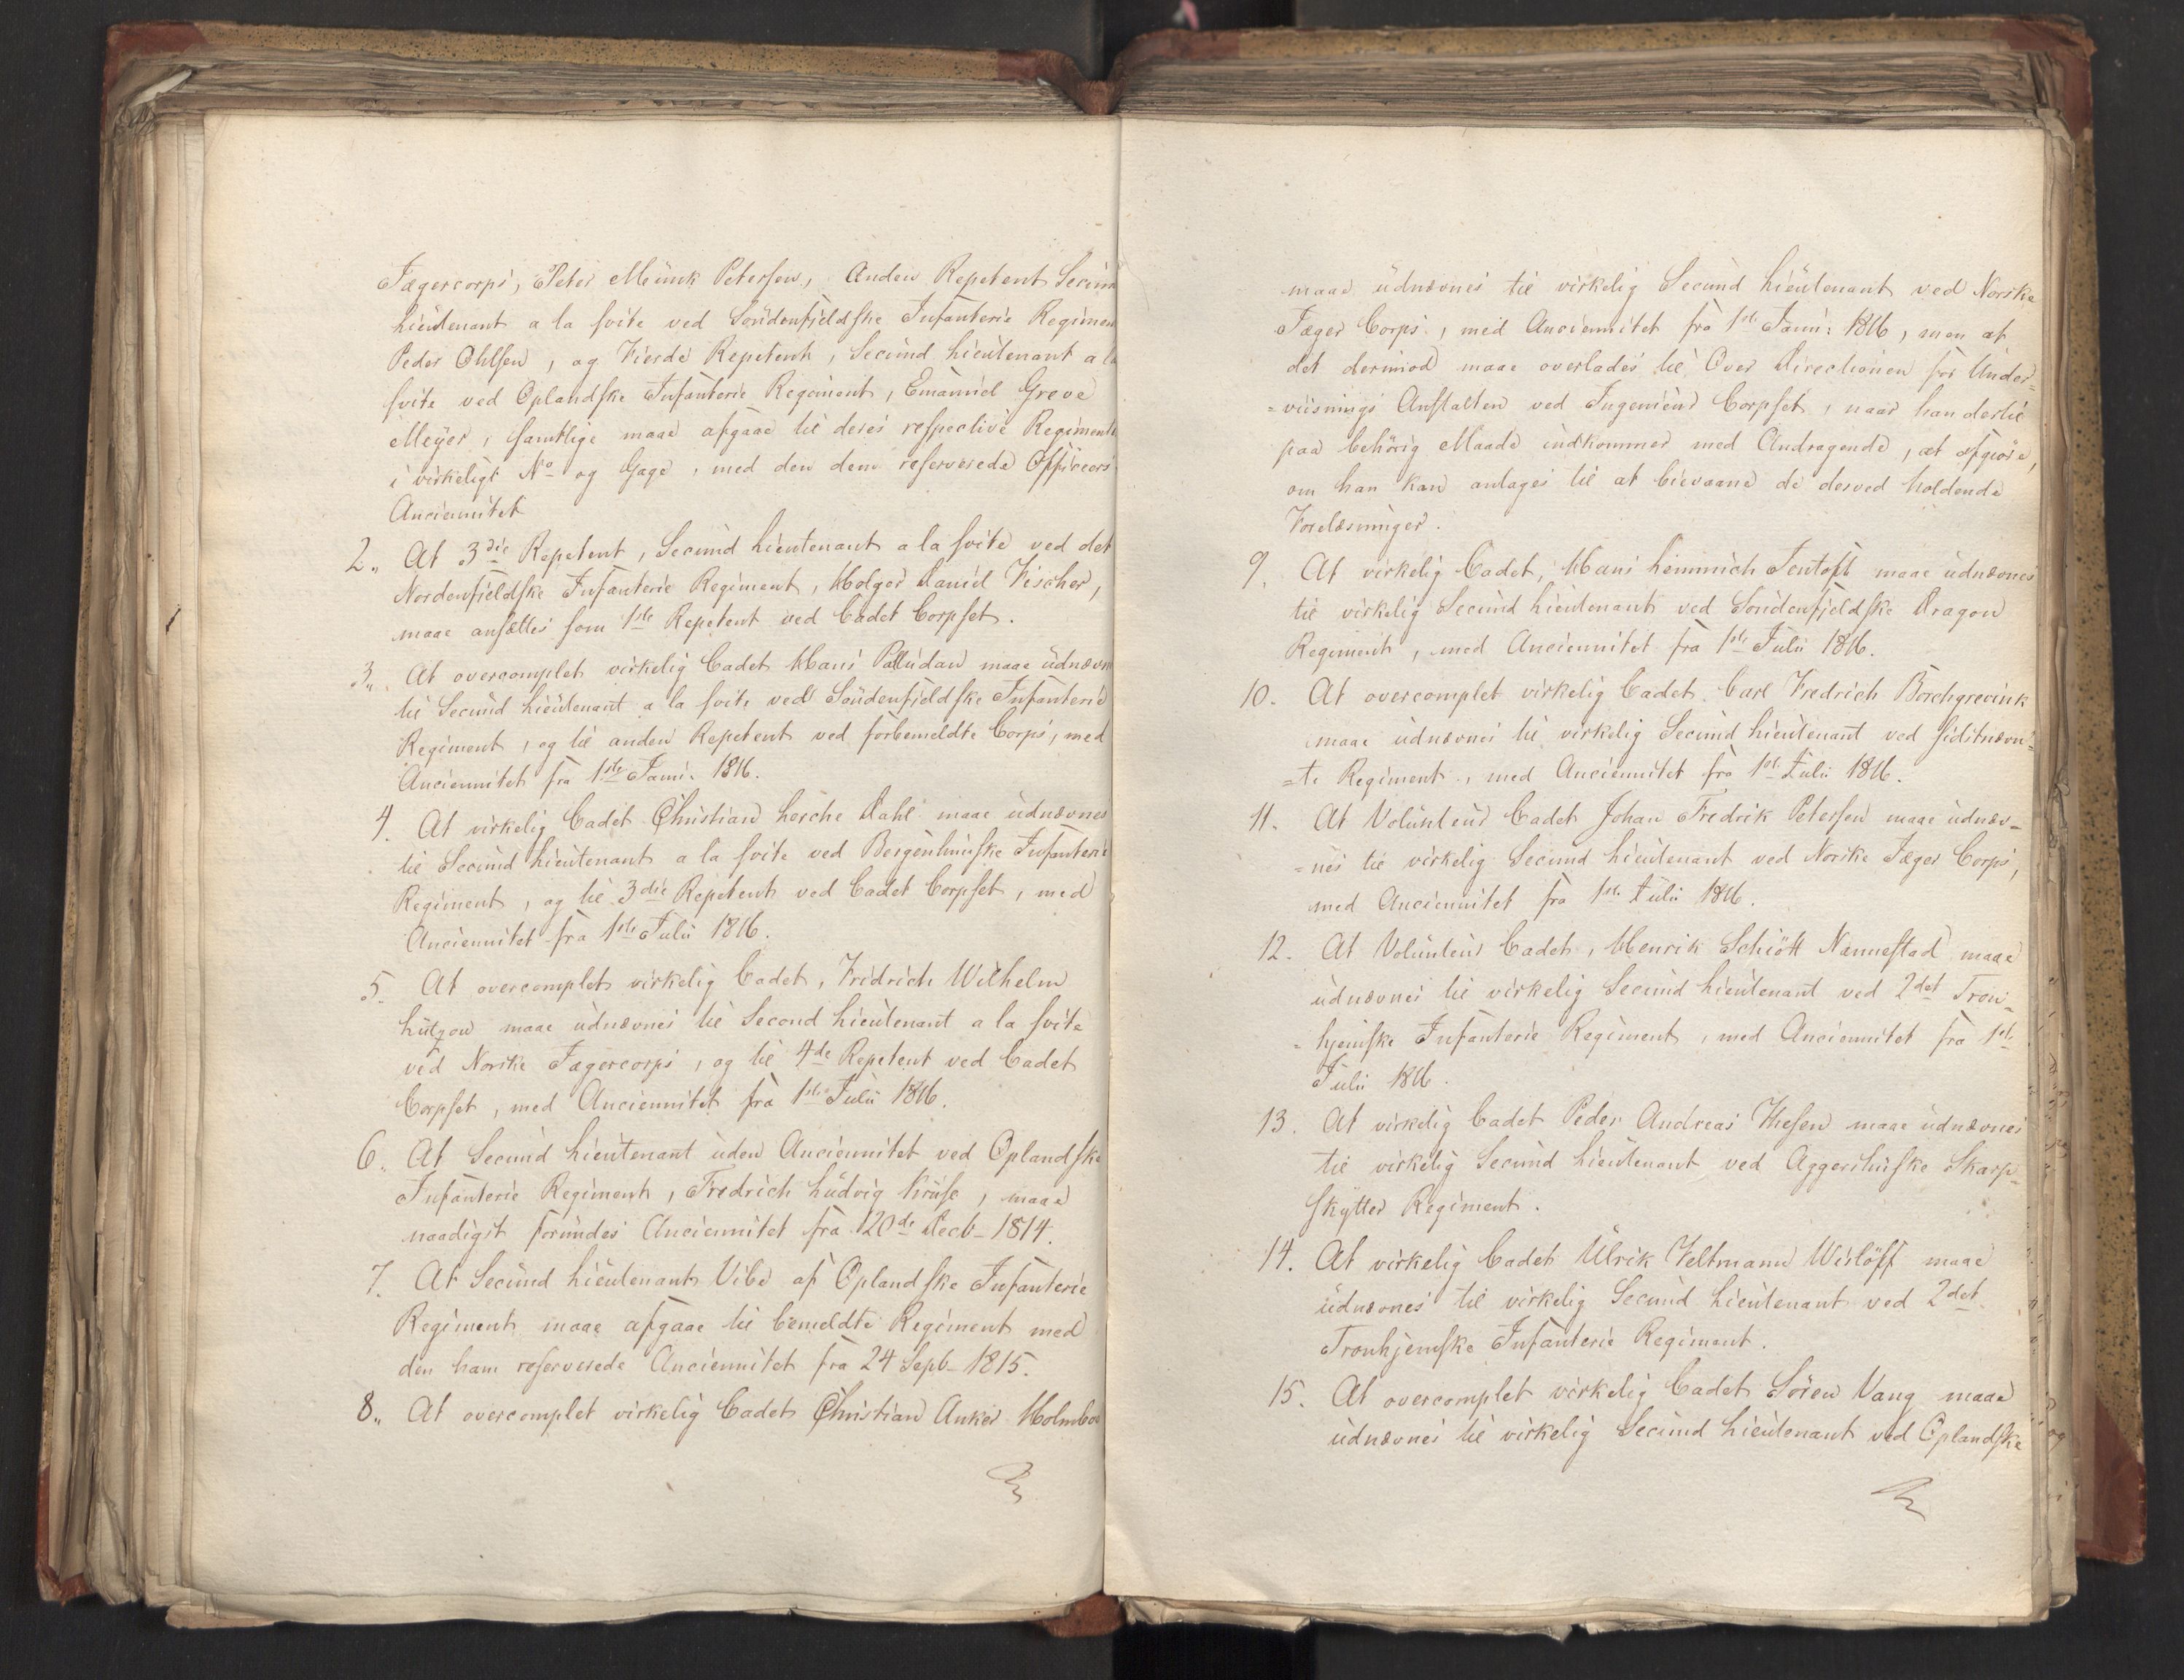 Jægercorps, Peter Munk Petersen, Anden Repetent Secun
Lieutenant a la suite ved Söndenfjeldske Infanterie Regimen
Peder Ohlsen, og Fierde Repetent, Second Lieutenant a la
suite ved Oplandske Infanterie Regiment, Emanuel Greve
Meÿer, samtlige maae afgaae til deres respective Regimente
i virkeligt No og Gage, med den dem reserverede Officeers
Anciennitet
2„ At 3die Repetent, Second Lieutenant a la suite ved det
Nordenfieldske Infanterie Regiment, Holger Daniel Fischer,
maae ansættes som 1ste Repetent ved Cadet Corpset.
3„ At overcomplet virkelig Cadet Hans Palludan maae udnævn
til Secund Lieutenant a la suite ved Söndenfjeldske Infanterie
Regiment, og til anden Repetent ved forbemeldte Corps, med
Anciennitet fra 1ste Janu: 1816.
4. At virkelig Cadet Christian Lerche Dahl maae udnævnes
til Secund Lieutenant a la suite ved Bergenhuuske Infanterie
Regiment, og til 3die Repetent ved Cadet Corpset, med
Anciennitet fra 1ste Julii 1816.
5. At overcomplet virkelig Cadet, Fridrich Wilhelm
Lützow maae udnævnes til Second Lieutenant a la suite
ved Norske Jægercorps, og til 4de Repetent ved Cadet
Corpset, med Anciennitet fra 1ste Julii 1816.
6. At Secund Lieutenant uden Anciennitet ved Oplandske
Infanterie Regiment, Fredrich Ludvig Kruse, maae
naadigst forundes Anciennitet fra 20de Decb- 1814.
7. At Secund Lieutenant Vibe af Oplandske Infanterie
Regiment maae afgaae til bemeldte Regiment med
den ham reserverede Anciennitet fra 24 Sepb- 1815.
8„ At overcomplet virkelig Cadet Christian Anker Holmboe
maae udnævnes til virkelig Secund Lieutenant ved Norske
Jæger Corps, med Anciennitet fra 1ste Janu: 1816, men at
det derimod maae overlades til Over Directionen for Under=
=viisnings Anstalten ved Ingenieur Corpset, naar han dertil
paa behörig Maade indkommer med Andragende, at afgiöre,
om han kan antages til at bievaane de derved holdende
Forelæsninger.
9. At virkelig Cadet, Hans Hemmich Jentoft maae udnævnes
til virkelig Secund Lieutenant ved Söndenfjeldske Dragon
Regiment, med Anciennitet fra 1ste Julii 1816.
10. At overcomplet virkelig Cadet Carl Fredrich Borchgrevink
maae udnævnes til virkelig Secund Lieutenant ved sidstnævn=
=te Regiment, med Anciennitet fra 1ste Julii 1816.
11. At Volunteur Cadet Johan Fredrik Petersen maae udnæv=
=nes til virkelig Secund Lieutenant ved Norske Jæger Corps,
med Anciennitet fra 1ste Julii 1816.
12. At Volunteur Cadet, Henrik Schiött Nannestad maae
udnævnes til virkelig Secund Lieutenant ved 2det Tron=
=hjemske Infanterie Regiment, med Anciennitet fra 1ste
Julii 1816.
13. At virkelig Cadet Peder Andreas Thesen maae udnævnes
til virkelig Secund Lieutenant ved Aggershuuske Skarp=
skytter Regiment.
14. At virkelig Cadet Ulrik Feltmann Wislöff maae
udnævnes til virkelig Secund Lieutenant ved 2det
Tronhjemske Infanterie Regiment.
15. At overcomplet virkelig Cadet Sören Vang maae
udnævnes til virkelig Secund Lieutenant ved Oplandske